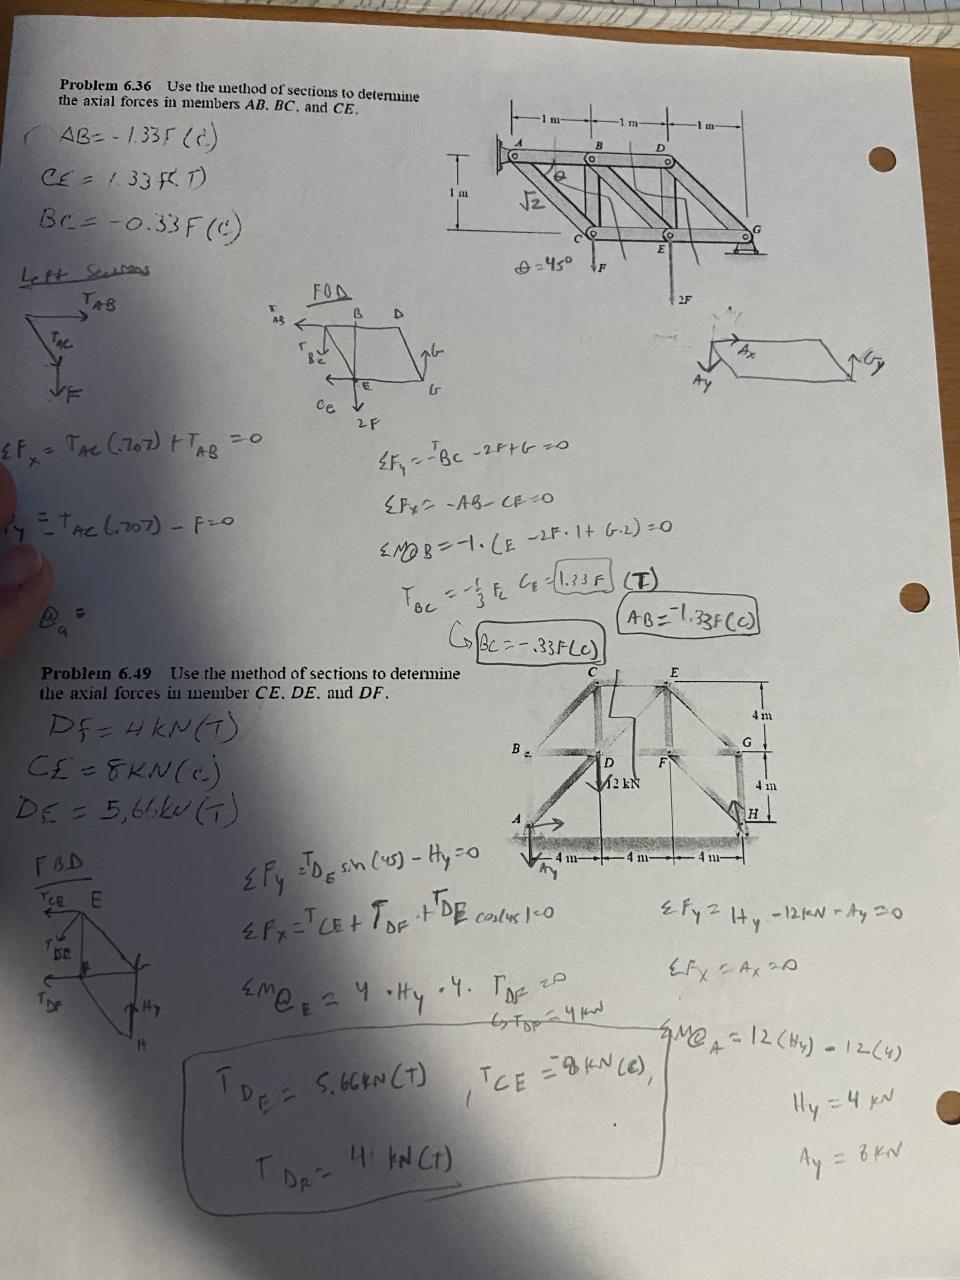 Problem 6.36 Use the method of sections to determine
the axial forces in members AB, BC, and CE.
AB = -1.33F (C)
CE = 1.33F (T)
BC = -0.33F (C)
1 m
1 m
1 m
A
B
D
1 m
θ
√2
C
E
G
θ = 45°
F
2F
Left Sections
T_AB
T_AC
F
FBD
T_AB
B
D
T_BC
G
E
G
Ce
2F
Ay
Ax
Ay
Gy
ΣFx = T_AC (.707) + T_AB = 0
y = -T_AC (.707) - F = 0
ΣFy = -T_BC - 2F + G = 0
ΣFx = -AB - CE = 0
ΣM@B = -1 · CE - 2F · 1 + G · 2) = 0
T_BC = -1/3 F
CE = 1.33F (T)
AB = -1.33F (C)
BC = -.33F (C)
Problem 6.49 Use the method of sections to determine
the axial forces in member CE, DE, and DF.
DF = 4 kN (T)
CE = 8 KN (C)
DE = 5,66kN (T)
C
E
4 m
B
D
F
G
12 kN
4 m
A
H
4 m
4 m
4 m
Ay
FBD
T_CE
E
T_DE
T_DF
Hy
H
ΣFy = T_DE sin (45) - Hy = 0
ΣFx = T_CE + T_DF + T_DE cos(45) = 0
ΣM@E = 4 · Hy · 4 · T_DF = 0
↳ T_DF = 4 kN
ΣFy = Hy - 12kN - Ay = 0
ΣFx = Ax = 0
ΣM@A = 12 (Hy) - 12 (4)
Hy = 4 kN
Ay = 8 kN
T_DE = 5.66kN (T), T_CE = -8 kN (C),
T_DF = 4 kN (T)